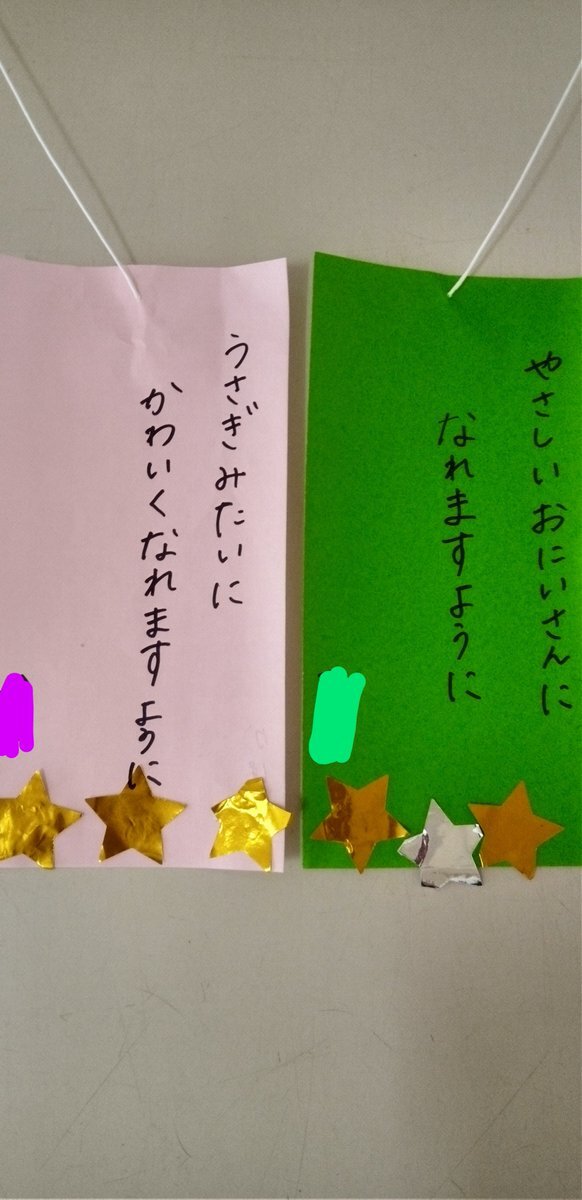 やさしいおにいさんに
なれますように
うさぎみたいに
かわいくなれますように